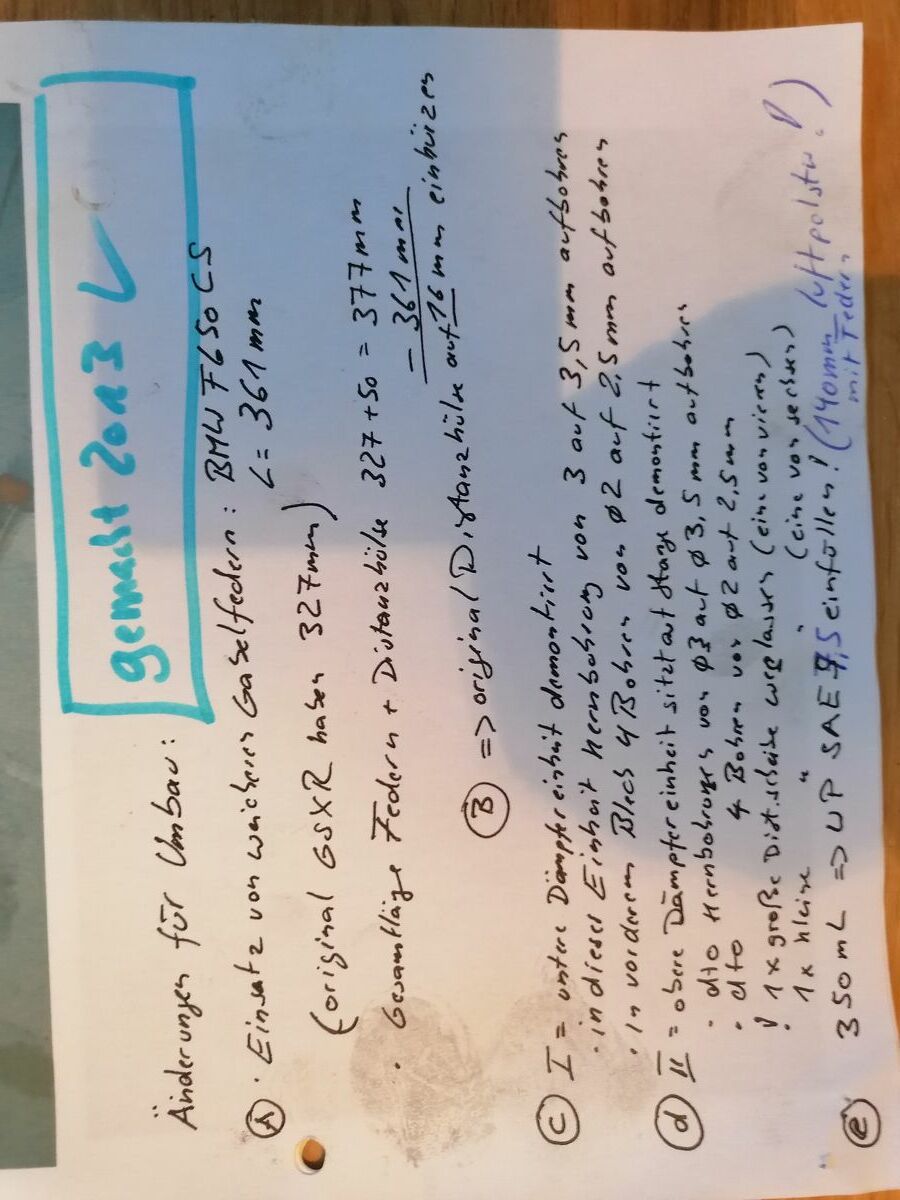 gemacht 2013 ✓
Änderungen für Umbau:
Ⓐ · Einsatz von weicheren Gabelfedern: BMW F650 CS
L = 361 mm
(original GSXR haben 327mm)
· Gesamtläge Federn + Distanzhülse 327+50 = 377mm
- 361 mm
Ⓑ => original Distanzhülse auf 16 mm einkürzen
Ⓒ I = untere Dämpfereinheit demontiert
· in dieser Einheit Kernbohrung von 3 auf 3,5 mm aufbohren
· in vorderem Blech 4 Bohren von ø2 auf 2,5mm aufbohren
ⓓ II = obere Dämpfereinheit sitzt auf Stange demontiert
· dto Kernbohrungen von ø3 auf ø3,5 mm aufbohren
· dto 4 Bohren von ø2 auf 2,5mm
! 1x große Dist.scheibe weglassen (eine von vieren)
1x kleine " " (eine von sechsen)
ⓔ 350mL => UP SAE 7,5 einfüllen! (140mm Luftpolster!)
mit Federn